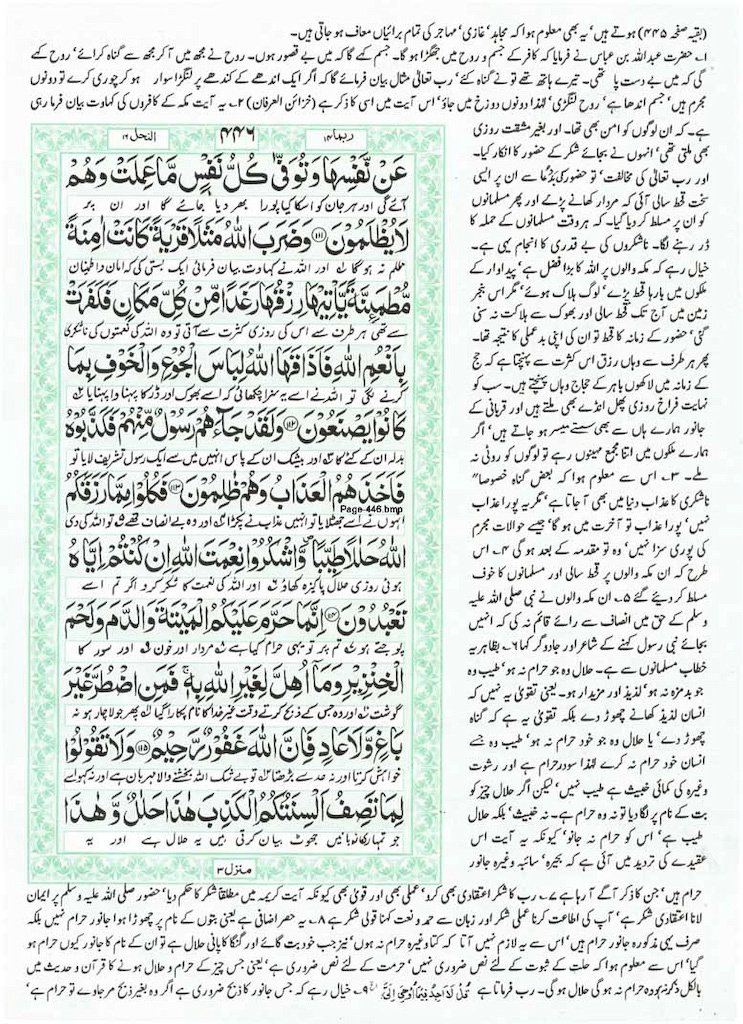 (بقیہ صفحہ ۴۴۵) ہوتے ہیں' یہ بھی معلوم ہوا کہ مجاہد' غازی' مہاجر کی تمام برائیاں معاف ہو جاتی ہیں۔
۱۔ حضرت عبداللہ بن عباس نے فرمایا کہ کافر کے جسم و روح میں جھگڑا ہو گا۔ جسم کہے گا کہ میں بے قصور ہوں۔ روح نے مجھ میں آ کر مجھ سے گناہ کرائے' روح کہے
گی کہ میں بے دست پا تھی۔ تیرے ہاتھ تھے تو نے گناہ کئے' رب تعالیٰ مثال بیان فرمائے گا کہ اگر ایک اندھے کے کندھے پر لنگڑا سوار ہو کر چوری کرے تو دونوں
مجرم ہیں' جسم اندھا ہے' روح لنگڑی' لہٰذا دونوں دوزخ میں جاؤ' اس آیت میں اسی کا ذکر ہے (خزائن العرفان) ۲۔ یہ آیت مکہ کے کافروں کی کہاوت بیان فرما رہی
ہے۔ کہ ان لوگوں کو امن بھی تھا۔ اور بغیر مشقت روزی
بھی ملتی تھی' انہوں نے بجائے شکر کے حضور کا انکار کیا۔
اور رب تعالیٰ کی مخالفت' تو حضور کی بددعا سے ان پر ایسی
سخت قحط سالی آئی کہ مردار کھانے پڑے اور پھر مسلمانوں
کو ان پر مسلط کر دیا گیا۔ کہ ہر وقت مسلمانوں کے حملہ کا
ڈر رہنے لگا۔ ناشکروں کی بے قدری کا انجام یہی ہے۔
خیال رہے کہ مکہ والوں پر اللہ کا بڑا فضل ہے' پیداوار کے
ملکوں میں بارہا قحط پڑے' لوگ ہلاک ہوئے' مگر اس بنجر
زمین میں آج تک قحط سالی اور بھوک سے ہلاکت نہ سنی
گئی' حضور کے زمانہ کا قحط تو ان کی اپنی بدعملی کا نتیجہ تھا۔
پھر ہر طرف سے وہاں رزق اس کثرت سے پہنچتا ہے کہ حج
کے زمانہ میں لاکھوں باہر کے حجاج وہاں پہنچتے ہیں۔ سب کو
نہایت فراخ روزی پھل انڈے بھی ملتے ہیں اور قربانی کے
جانور ہمارے ہاں سے بھی سستے میسر ہو جاتے ہیں' اگر
ہمارے ملکوں میں اتنا مجمع مہینوں رہے تو لوگوں کو روٹی نہ
ملے۔ ۳۔ اس سے معلوم ہوا کہ بعض گناہ خصوصا"
ناشکری کا عذاب دنیا میں بھی آ جاتا ہے' مگر یہ پورا عذاب
نہیں' پورا عذاب تو آخرت میں ہو گا' جیسے حوالات مجرم
کی پوری سزا نہیں' وہ تو مقدمہ کے بعد ہو گی ۴۔ اس
طرح کہ ان مکہ والوں پر قحط سالی اور مسلمانوں کا خوف
مسلط کر دیئے گئے ۵۔ ان مکہ والوں نے نبی صلی اللہ علیہ
وسلم کے حق میں انصاف سے رائے قائم نہ کی کہ انہیں
بجائے نبی رسول کہنے کے شاعر اور جادوگر کہا ۶۔ بظاہر یہ
خطاب مسلمانوں سے ہے۔ حلال وہ جو حرام نہ ہو' طیب وہ
جو بدمزہ نہ ہو' لذیذ اور مزیدار ہو۔ یعنی تقویٰ یہ نہیں کہ
انسان لذیذ کھانے چھوڑ دے بلکہ تقویٰ یہ ہے کہ گناہ
چھوڑ دے' یا حلال وہ جو خود حرام نہ ہو' طیب وہ جسے
انسان خود حرام نہ کرے لہٰذا سود حرام ہے اور رشوت
وغیرہ کی کمائی خبیث ہے طیب نہیں' لیکن اگر حلال چیز کو
بت کے نام پر لگا دیا تو نہ وہ حرام ہے۔ نہ خبیث' بلکہ حلال
طیب ہے' اس کو حرام نہ جانو' کیونکہ یہ آیت اس
عقیدے کی تردید میں آئی ہے کہ بحیرہ' سائبہ وغیرہ جانور
النحل ۱۶
۴۴۶
ربما ۱۴
عَنْ نَّفْسِهَا وَتُوَفّٰى كُلُّ نَفْسٍ مَّا عَمِلَتْ وَهُمْ
آئے گی اور ہر جان کو اسکا کیا پورا بھر دیا جائے گا اور ان پر
لَا يُظْلَمُوْنَ ﴿۱۱۱﴾ وَضَرَبَ اللّٰهُ مَثَلًا قَرْيَةً كَانَتْ اٰمِنَةً
ظلم نہ ہو گا ۱ اور اللہ نے کہاوت بیان فرمائی ایک بستی کی کہ امان و اطمینان
مُّطْمَىِٕنَّةً يَّاْتِيْهَا رِزْقُهَا رَغَدًا مِّنْ كُلِّ مَكَانٍ فَكَفَرَتْ
سے تھی ہر طرف سے اس کی روزی کثرت سے آتی تو وہ اللہ کی نعمتوں کی ناشکری
بِاَنْعُمِ اللّٰهِ فَاَذَاقَهَا اللّٰهُ لِبَاسَ الْجُوْعِ وَالْخَوْفِ بِمَا
کرنے لگی تو اللہ نے اسے یہ سزا چکھائی کہ اسے بھوک اور ڈر کا پہناوا پہنایا
كَانُوْا يَصْنَعُوْنَ ﴿۱۱۲﴾ وَلَقَدْ جَآءَهُمْ رَسُوْلٌ مِّنْهُمْ فَكَذَّبُوْهُ
بدلہ ان کے کئے کا اور بیشک ان کے پاس انہیں میں سے ایک رسول تشریف لایا تو
فَاَخَذَهُمُ الْعَذَابُ وَهُمْ ظٰلِمُوْنَ ﴿۱۱۳﴾ فَكُلُوْا مِمَّا رَزَقَكُمُ
Page-446.bmp
انہوں نے اسے جھٹلایا تو انہیں عذاب نے پکڑا اور وہ بے انصاف تھے تو اللہ کی دی
اللّٰهُ حَلٰلًا طَيِّبًا وَّاشْكُرُوْا نِعْمَتَ اللّٰهِ اِنْ كُنْتُمْ اِيَّاهُ
ہوئی روزی حلال پاکیزہ کھاؤ اور اللہ کی نعمت کا شکر کرو اگر تم اسے
تَعْبُدُوْنَ ﴿۱۱۴﴾ اِنَّمَا حَرَّمَ عَلَيْكُمُ الْمَيْتَةَ وَالدَّمَ وَلَحْمَ
پوجتے ہو تم پر تو یہی حرام کیا ہے مردار اور خون اور سور کا
الْخِنْزِيْرِ وَمَآ اُهِلَّ لِغَيْرِ اللّٰهِ بِهٖ ۚ فَمَنِ اضْطُرَّ غَيْرَ
گوشت اور وہ جس کے ذبح کرتے وقت غیر خدا کا نام پکارا گیا پھر جو لاچار ہو نہ
بَاغٍ وَّلَا عَادٍ فَاِنَّ اللّٰهَ غَفُوْرٌ رَّحِيْمٌ ﴿۱۱۵﴾ وَلَا تَقُوْلُوْا
خواہش کرتا اور نہ حد سے بڑھتا تو بے شک اللہ بخشنے والا مہربان ہے اور نہ کہو اسے
لِمَا تَصِفُ اَلْسِنَتُكُمُ الْكَذِبَ هٰذَا حَلٰلٌ وَّهٰذَا
جو تمہاری زبانیں جھوٹ بیان کرتی ہیں یہ حلال ہے اور یہ
منزل ۳
حرام ہیں' جن کا ذکر آگے آ رہا ہے ۷۔ رب کا شکر اعتقادی بھی کرو' عملی بھی اور قولی بھی کیونکہ آیت کریمہ میں مطلقا شکر کا حکم دیا' حضور صلی اللہ علیہ وسلم پر ایمان
لانا اعتقادی شکر ہے' آپ کی اطاعت کرنا عملی شکر اور زبان سے حمد و نعت کہنا قولی شکر ہے ۸۔ یہ حصر اضافی ہے یعنی بتوں کے نام پر چھوڑا ہوا جانور حرام نہیں بلکہ
صرف یہی مذکورہ جانور حرام ہیں' اس سے یہ لازم نہیں آتا کہ کتا وغیرہ حرام نہ ہوں' نیز جب خود بت گائے اور گنگا کا پانی حلال ہے تو ان کے نام کا جانور کیوں حرام ہو
گیا' اس سے معلوم ہوا کہ حلت کے ثبوت کے لئے نص ضروری نہیں' حرمت کے لئے نص ضروری ہے' یعنی جس چیز کے حرام و حلال ہونے کا قرآن و حدیث میں
بالکل ذکر نہ ہو وہ حرام نہ ہو گی حلال ہو گی۔ رب فرماتا ہے قُلْ لَّآ اَجِدُ فِيْمَآ اُوْحِيَ اِلَيَّ الخ ۹۔ خیال رہے کہ جس جانور کا ذبح ضروری ہے اگر وہ بغیر ذبح مر جاوے تو حرام ہے'